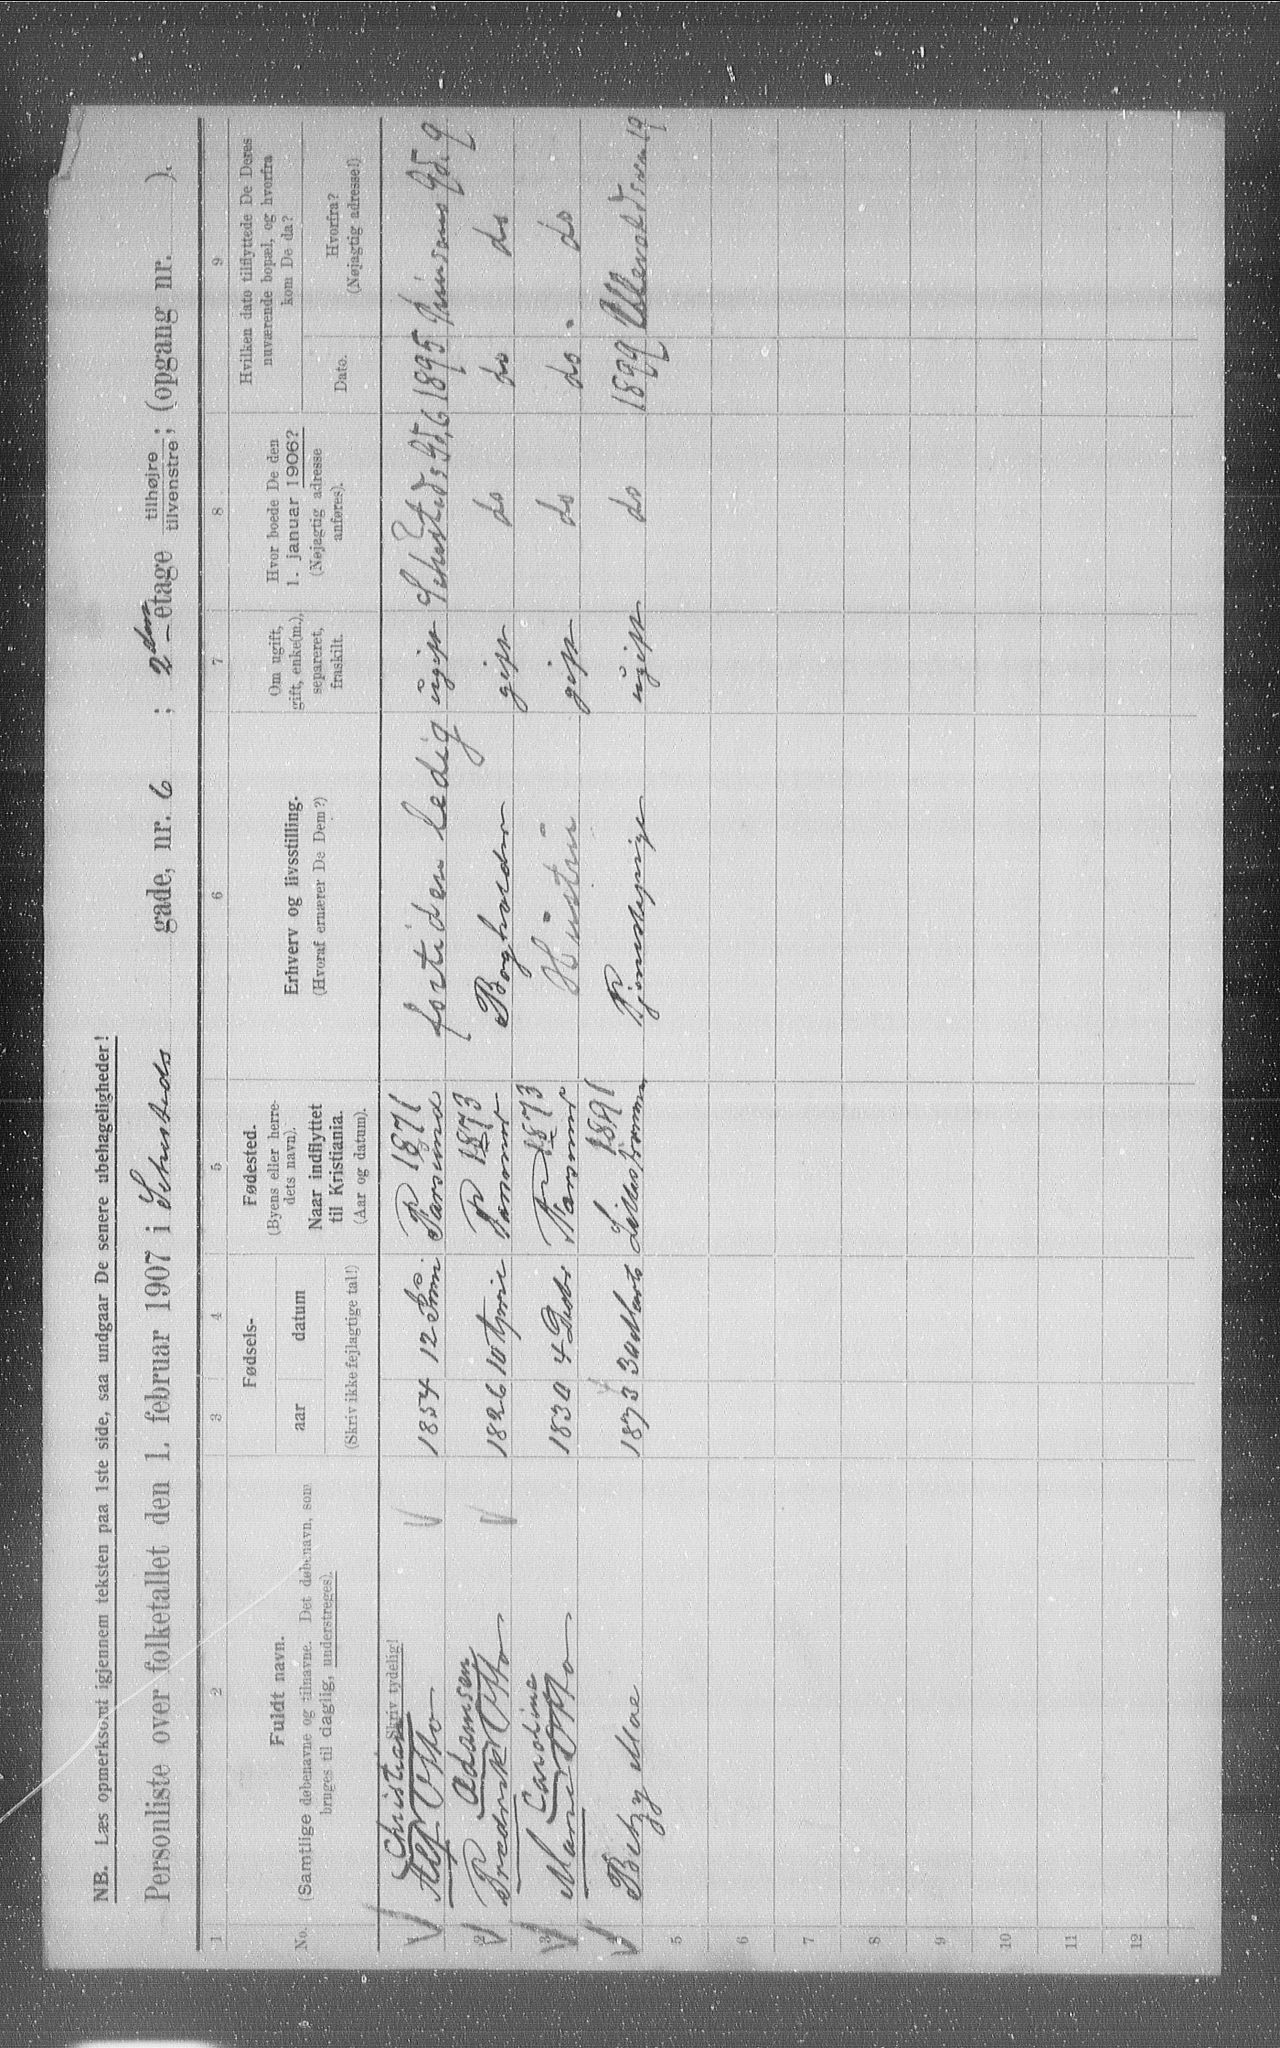 NB. Læs opmerksomt igjennem teksten paa 1ste side, saa undgaar De senere ubehageligheder!
Personliste over folketallet den 1. februar 1907 i Schusteds gade, nr. 6 ; 2den etage tilhøjre tilvenstre; (opgang nr. ).
1 2 3 4 5 6 7 8 9
No.
Fuldt navn.
(Samtlige døbenavne og tilnavne. Det døbenavn, som
bruges til daglig, understreges).
Skriv tydelig!
Fødsels-
aar datum
(Skriv ikke fejlagtige tal!)
Fødested.
(Byens eller herre-
dets navn).
Naar indflyttet
til Kristiania.
(Aar og datum).
Erhverv og livsstilling.
(Hvoraf ernærer De Dem?)
Om ugift,
gift, enke(m.),
separeret,
fraskilt.
Hvor boede De den
1. januar 1906?
(Nøjagtig adresse
anføres).
Hvilken dato tilflyttede De Deres
nuværende bopæl, og hvorfra
kom De da?
Dato.
Hvorfra?
(Nøjagtig adresse!)
Christian 1871
Alf Otto 1854 12 Juni Farsund fortiden ledig ugift Schusteds Gd. 6 1895 Gd. 9
Adamsen 1873
2 Fredrik Otto 1826 10 April Bogholder gift do do do
Caroline 1873
3 Marie Otto 1830 4 gift do do do
1891
4 Betzy Moe 1873 30 Marts Lillestrømmen Tjenestepige ugift do 1899 Ullevoldsven 19
5
6
7
8
9
10
11
12